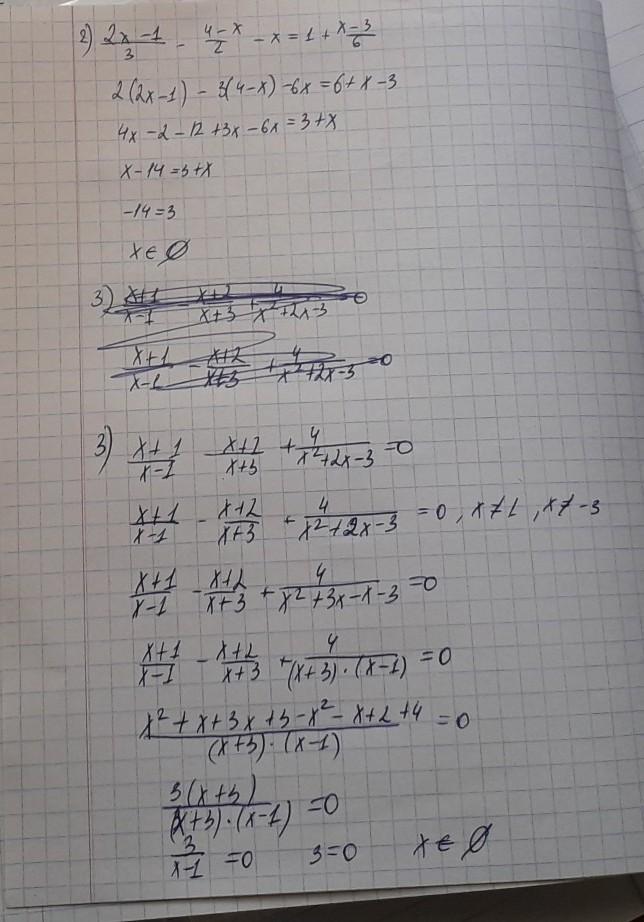 2) (2x-1)/3 - (4-x)/2 - x = 1 + (x-3)/6
2(2x-1) - 3(4-x) - 6x = 6 + x - 3
4x - 2 - 12 + 3x - 6x = 3 + x
x - 14 = 3 + x
-14 = 3
x ∈ ∅
3) (x+1)/(x-1) (x+2)/(x+3) + 4/(x²+2x-3) = 0
(x+1)/(x-1) - (x+2)/(x+3) + 4/(x²+2x-3) = 0
3) (x+1)/(x-1) - (x+2)/(x+3) + 4/(x²+2x-3) = 0
(x+1)/(x-1) - (x+2)/(x+3) + 4/(x²+2x-3) = 0, x≠1, x≠-3
(x+1)/(x-1) - (x+2)/(x+3) + 4/(x²+3x-x-3) = 0
(x+1)/(x-1) - (x+2)/(x+3) + 4/((x+3)·(x-1)) = 0
(x²+x+3x+3-x²-x+2+4)/((x+3)·(x-1)) = 0
3(x+3)/((x+3)·(x-1)) = 0
3/(x-1) = 0 3=0 x ∈ ∅